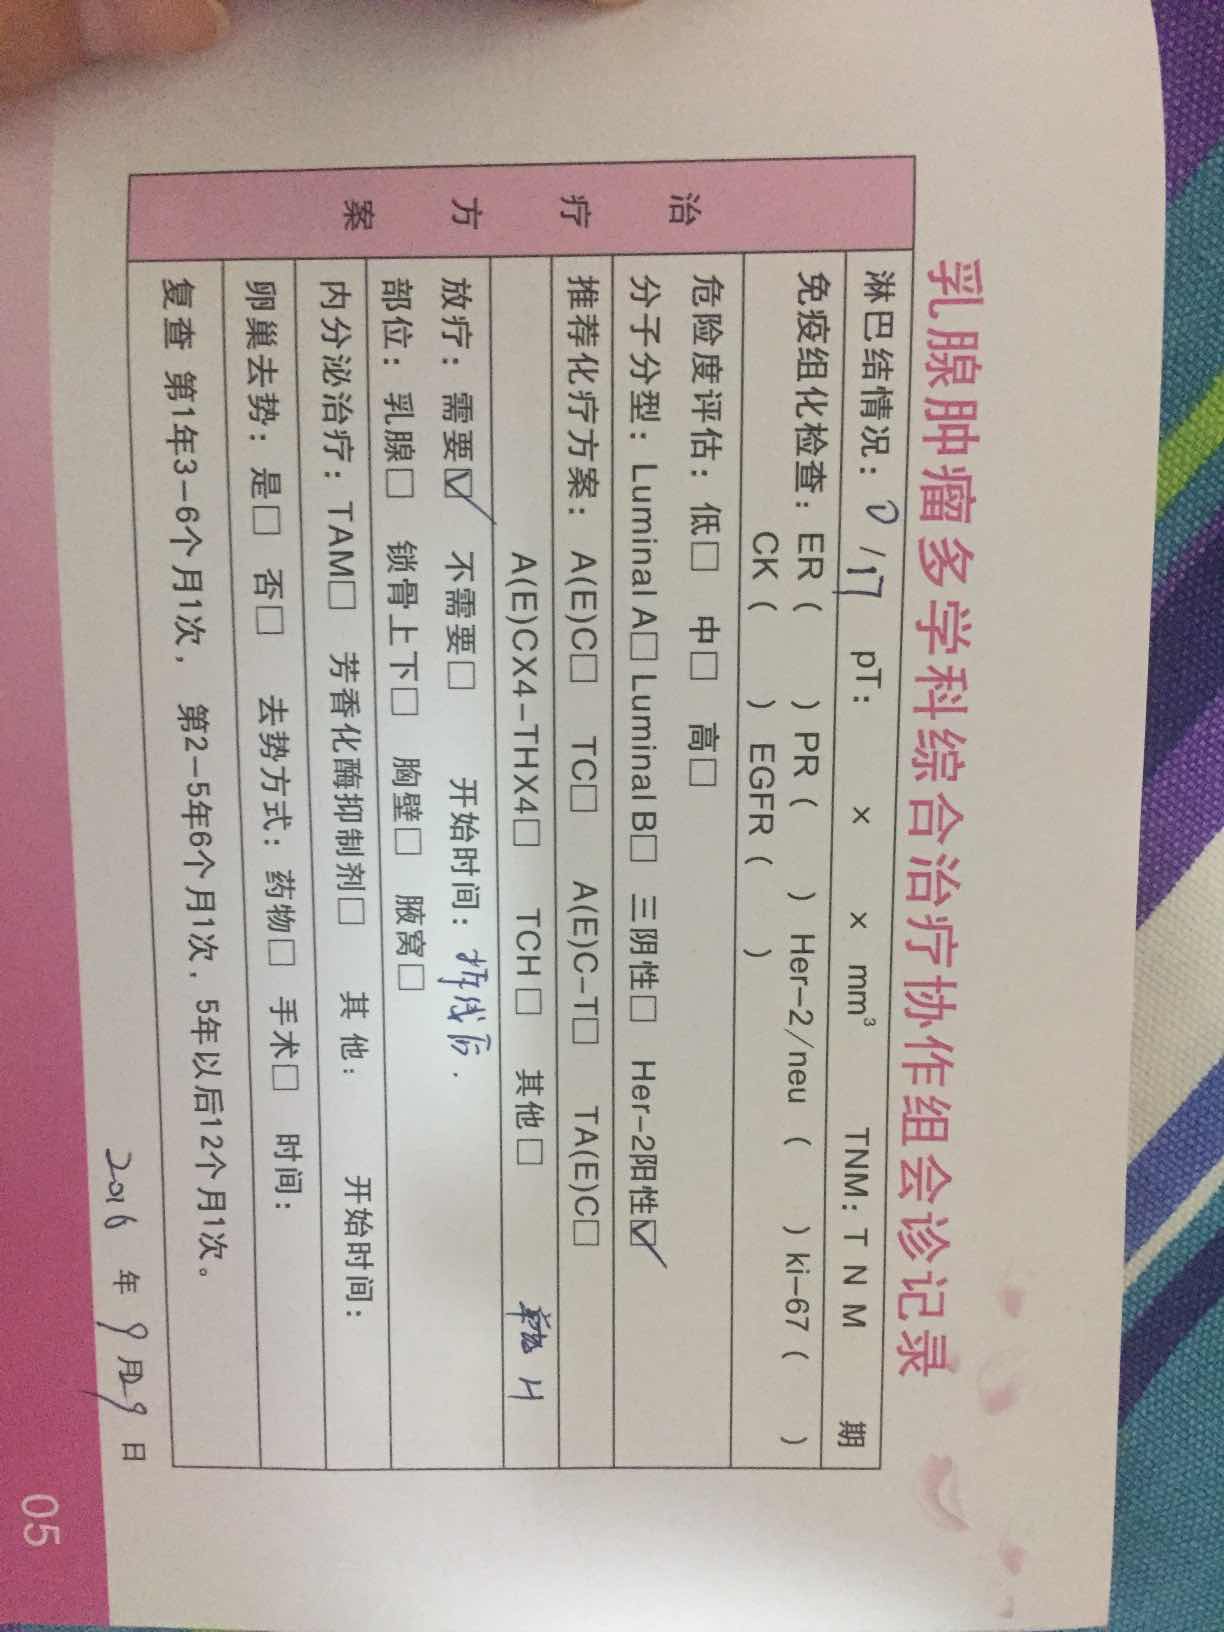 乳腺肿瘤多学科综合治疗协作组会诊记录
治疗方案
淋巴结情况：0/17 pT： × × mm³ TNM：T N M 期
免疫组化检查：ER（ ）PR（ ）Her-2/neu（ ）ki-67（ ）
CK（ ）EGFR（ ）
危险度评估：低□ 中□ 高□
分子分型：Luminal A□ Luminal B□ 三阴性□ Her-2阳性☑
推荐化疗方案：A(E)C□ TC□ A(E)C-T□ TA(E)C□
A(E)CX4-THX4□ TCH□ 其他□ H
放疗：需要☑ 不需要□ 开始时间：拆线后.
部位：乳腺□ 锁骨上下□ 胸壁□ 腋窝□
内分泌治疗：TAM□ 芳香化酶抑制剂□ 其他： 开始时间：
卵巢去势：是□ 否□ 去势方式：药物□ 手术□ 时间：
复查 第1年3-6个月1次，第2-5年6个月1次，5年以后12个月1次。
2016 年 9 月 29 日
05